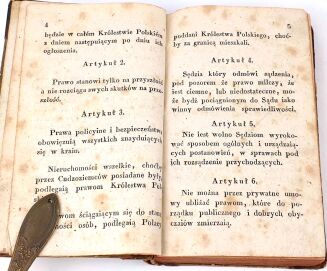 4
będzie w całém Królestwie Polskiém
z dniem następującym po dniu ich
ogłoszenia.
Artykuł 2.
Prawo stanowi tylko na przyszłość
a nie rozciąga swych skutków na prze-
szłość.
Artykuł 3.
Prawa policyine i bezpieczeństwa
obowiązują wszystkich znaydujących
się w kraiu.
Nieruchomości wszelkie, choćby
przez Cudzoziemców posiadane były,
podlegają prawom Królestwa Pols
Prawom ściągającym się do stanu
ności osób, podlegają Polacy
5
poddani Królestwa Polskiego, choć-
by za granicą mieszkali.
Artykuł 4.
Sędzia który odmówi sądzenia,
pod pozorem że prawo milczy, że
jest ciemne, lub niedostateczne, mo-
że bydź pociągnionym do Sądu iako
winny odmówienia sprawiedliwości.
Artykuł 5.
Nie jest wolno Sędziom wyroko-
wać sposobem ogólnych i urządzają-
cych postanowień, w sprawach pod
ich rozsądzenie przychodzących.
Artykuł 6.
Nie można przez prywatne umo-
wy ubliżać prawom, które do po-
rządku publicznego i dobrych oby-
czaiów zmierzają.